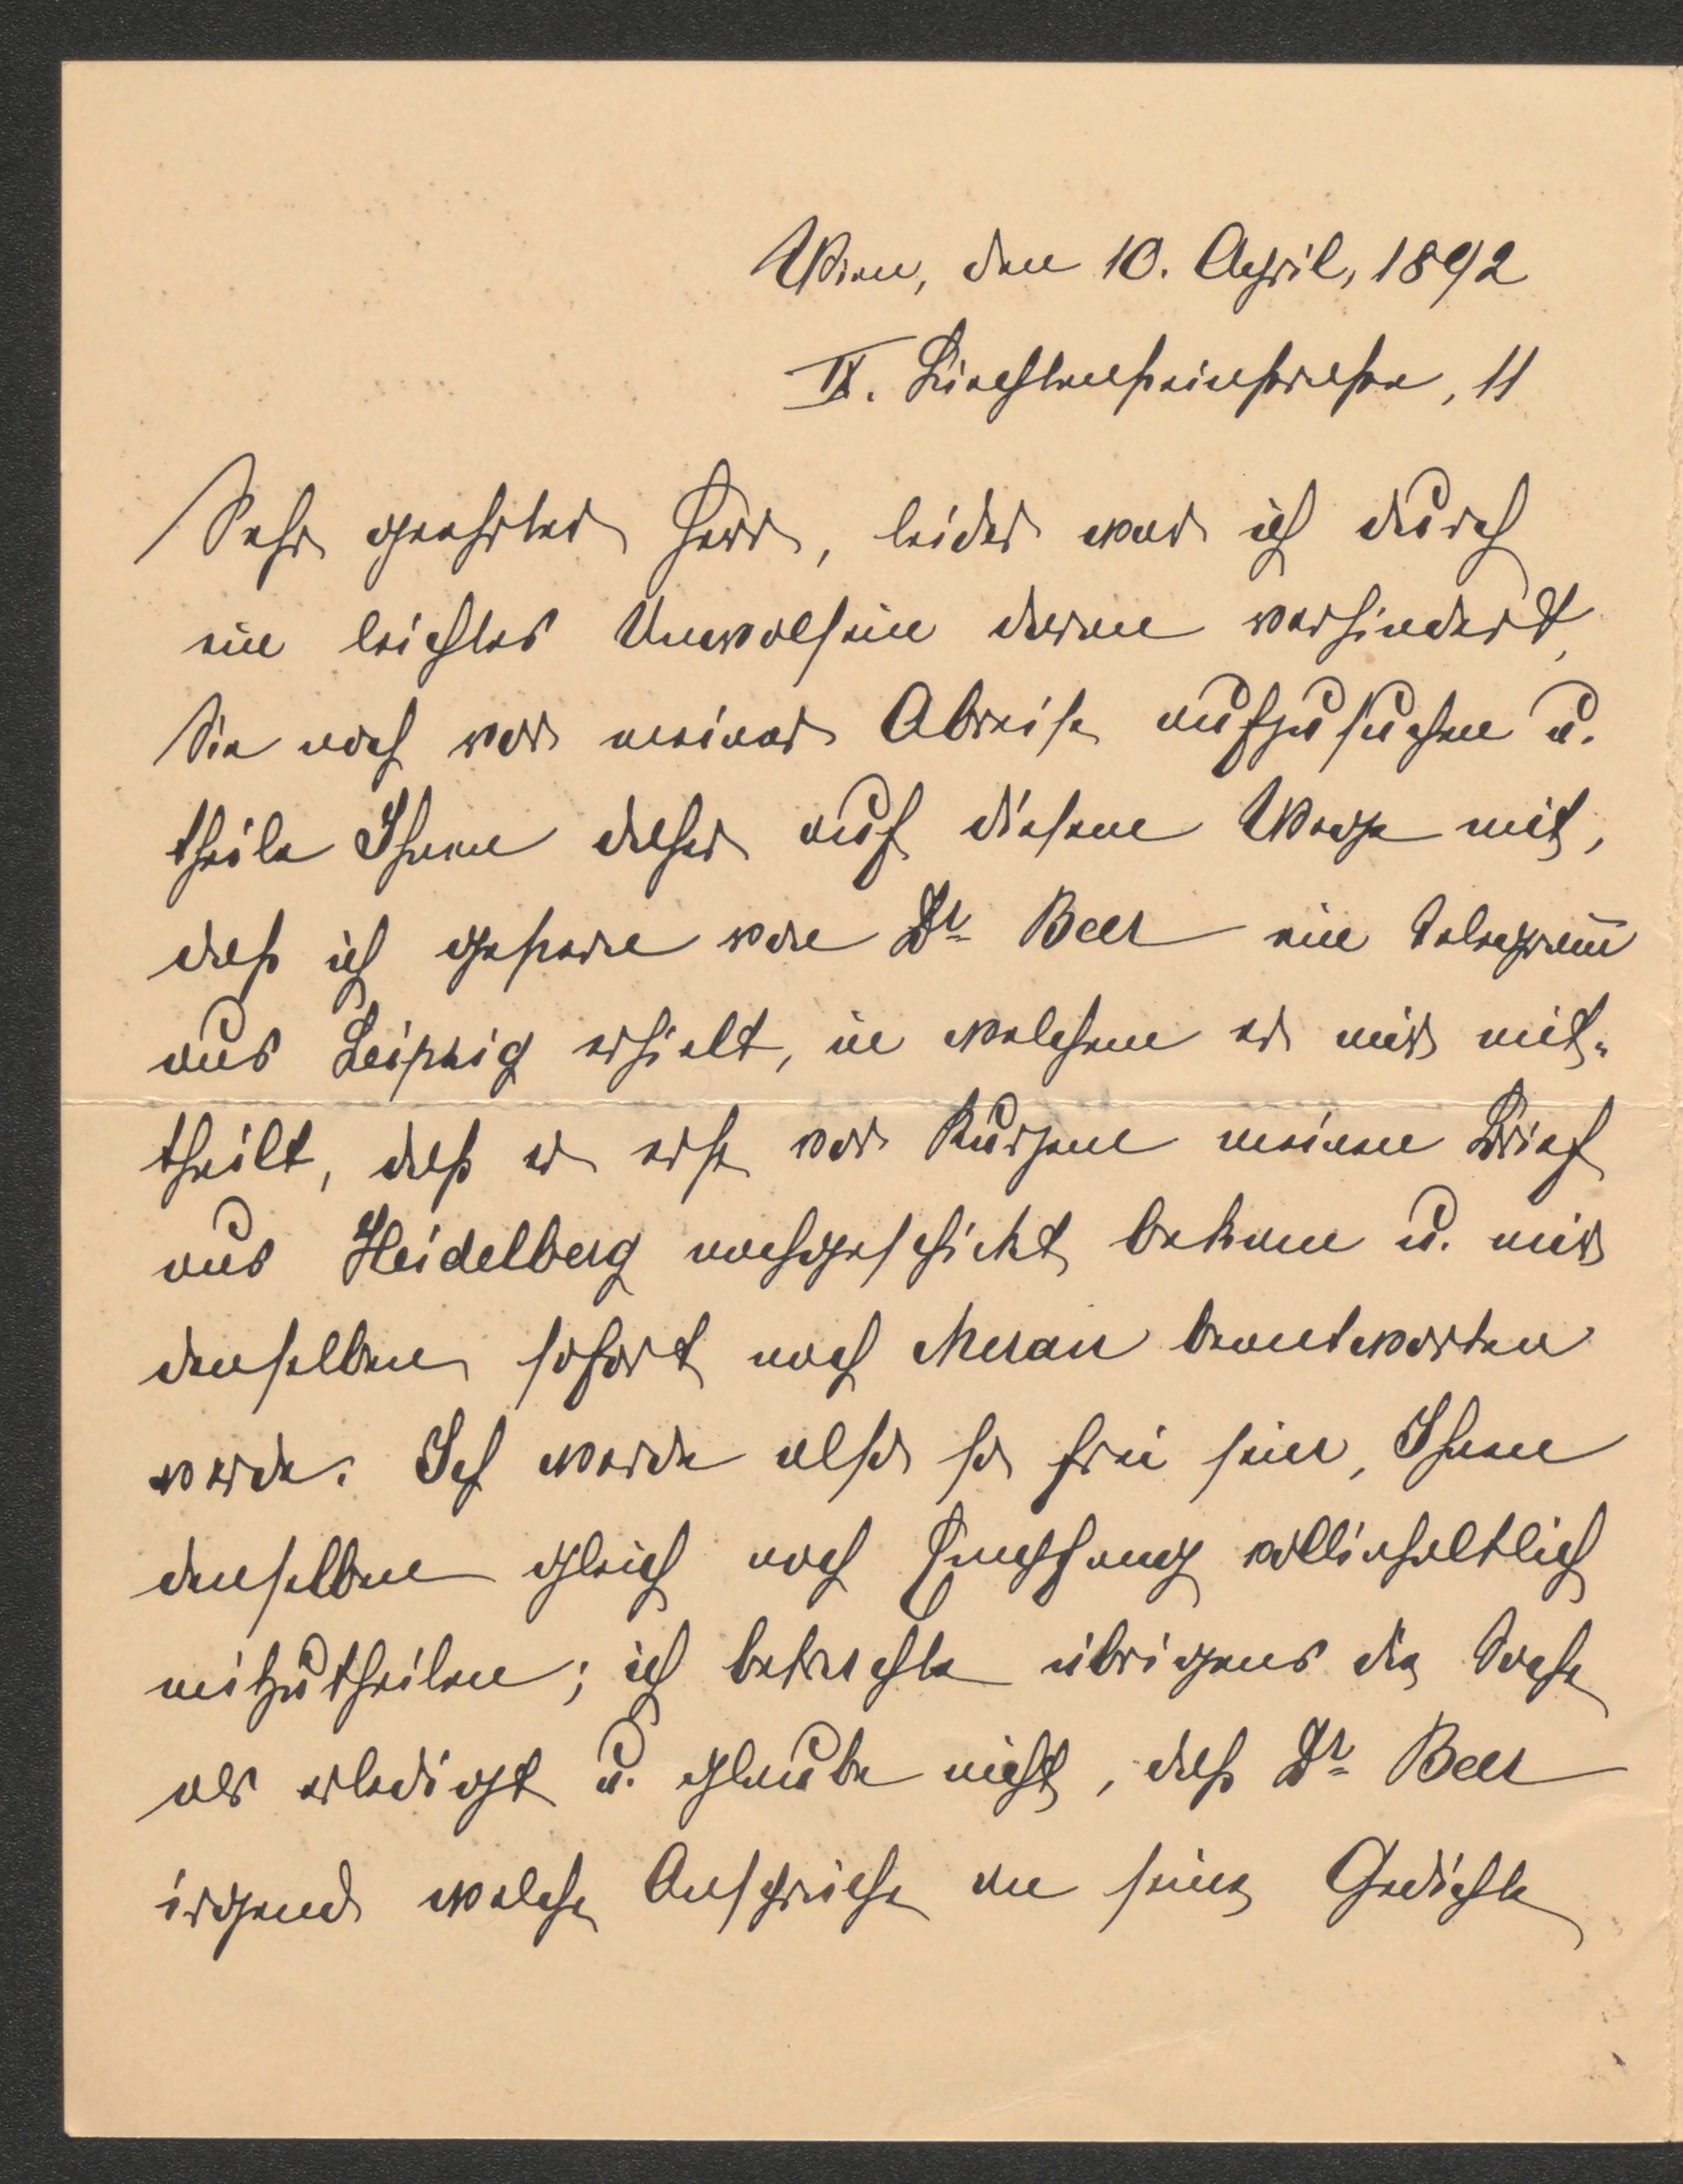 Wien, den 10. April, 1892
IX. Liechtensteinstrasse, 11
Sehr geehrter Herr, leider war ich durch
ein leichtes Unwolsein daran verhindert,
Sie noch vor meiner Abreise aufzusuchen u.
theile Ihnen daher auf diesem Wege mit,
daß ich gestern von Dr Beer ein Telegram̅
aus Leipzig erhielt, in welchem er mir mit-
theilt, daß er erst vor Kurzem meinen Brief
aus Heidelberg nachgeschickt bekam u. mir
denselben sofort nach Meran beantworten
werde. Ich werde also so frei sein, Ihnen
denselben gleich nach Empfang vollinhaltlich
mitzutheilen; ich betrachte übrigens die Sache
als erledigt u. glaube nicht, daß Dr Beer
irgend welche Ansprüche an seine Gedichte